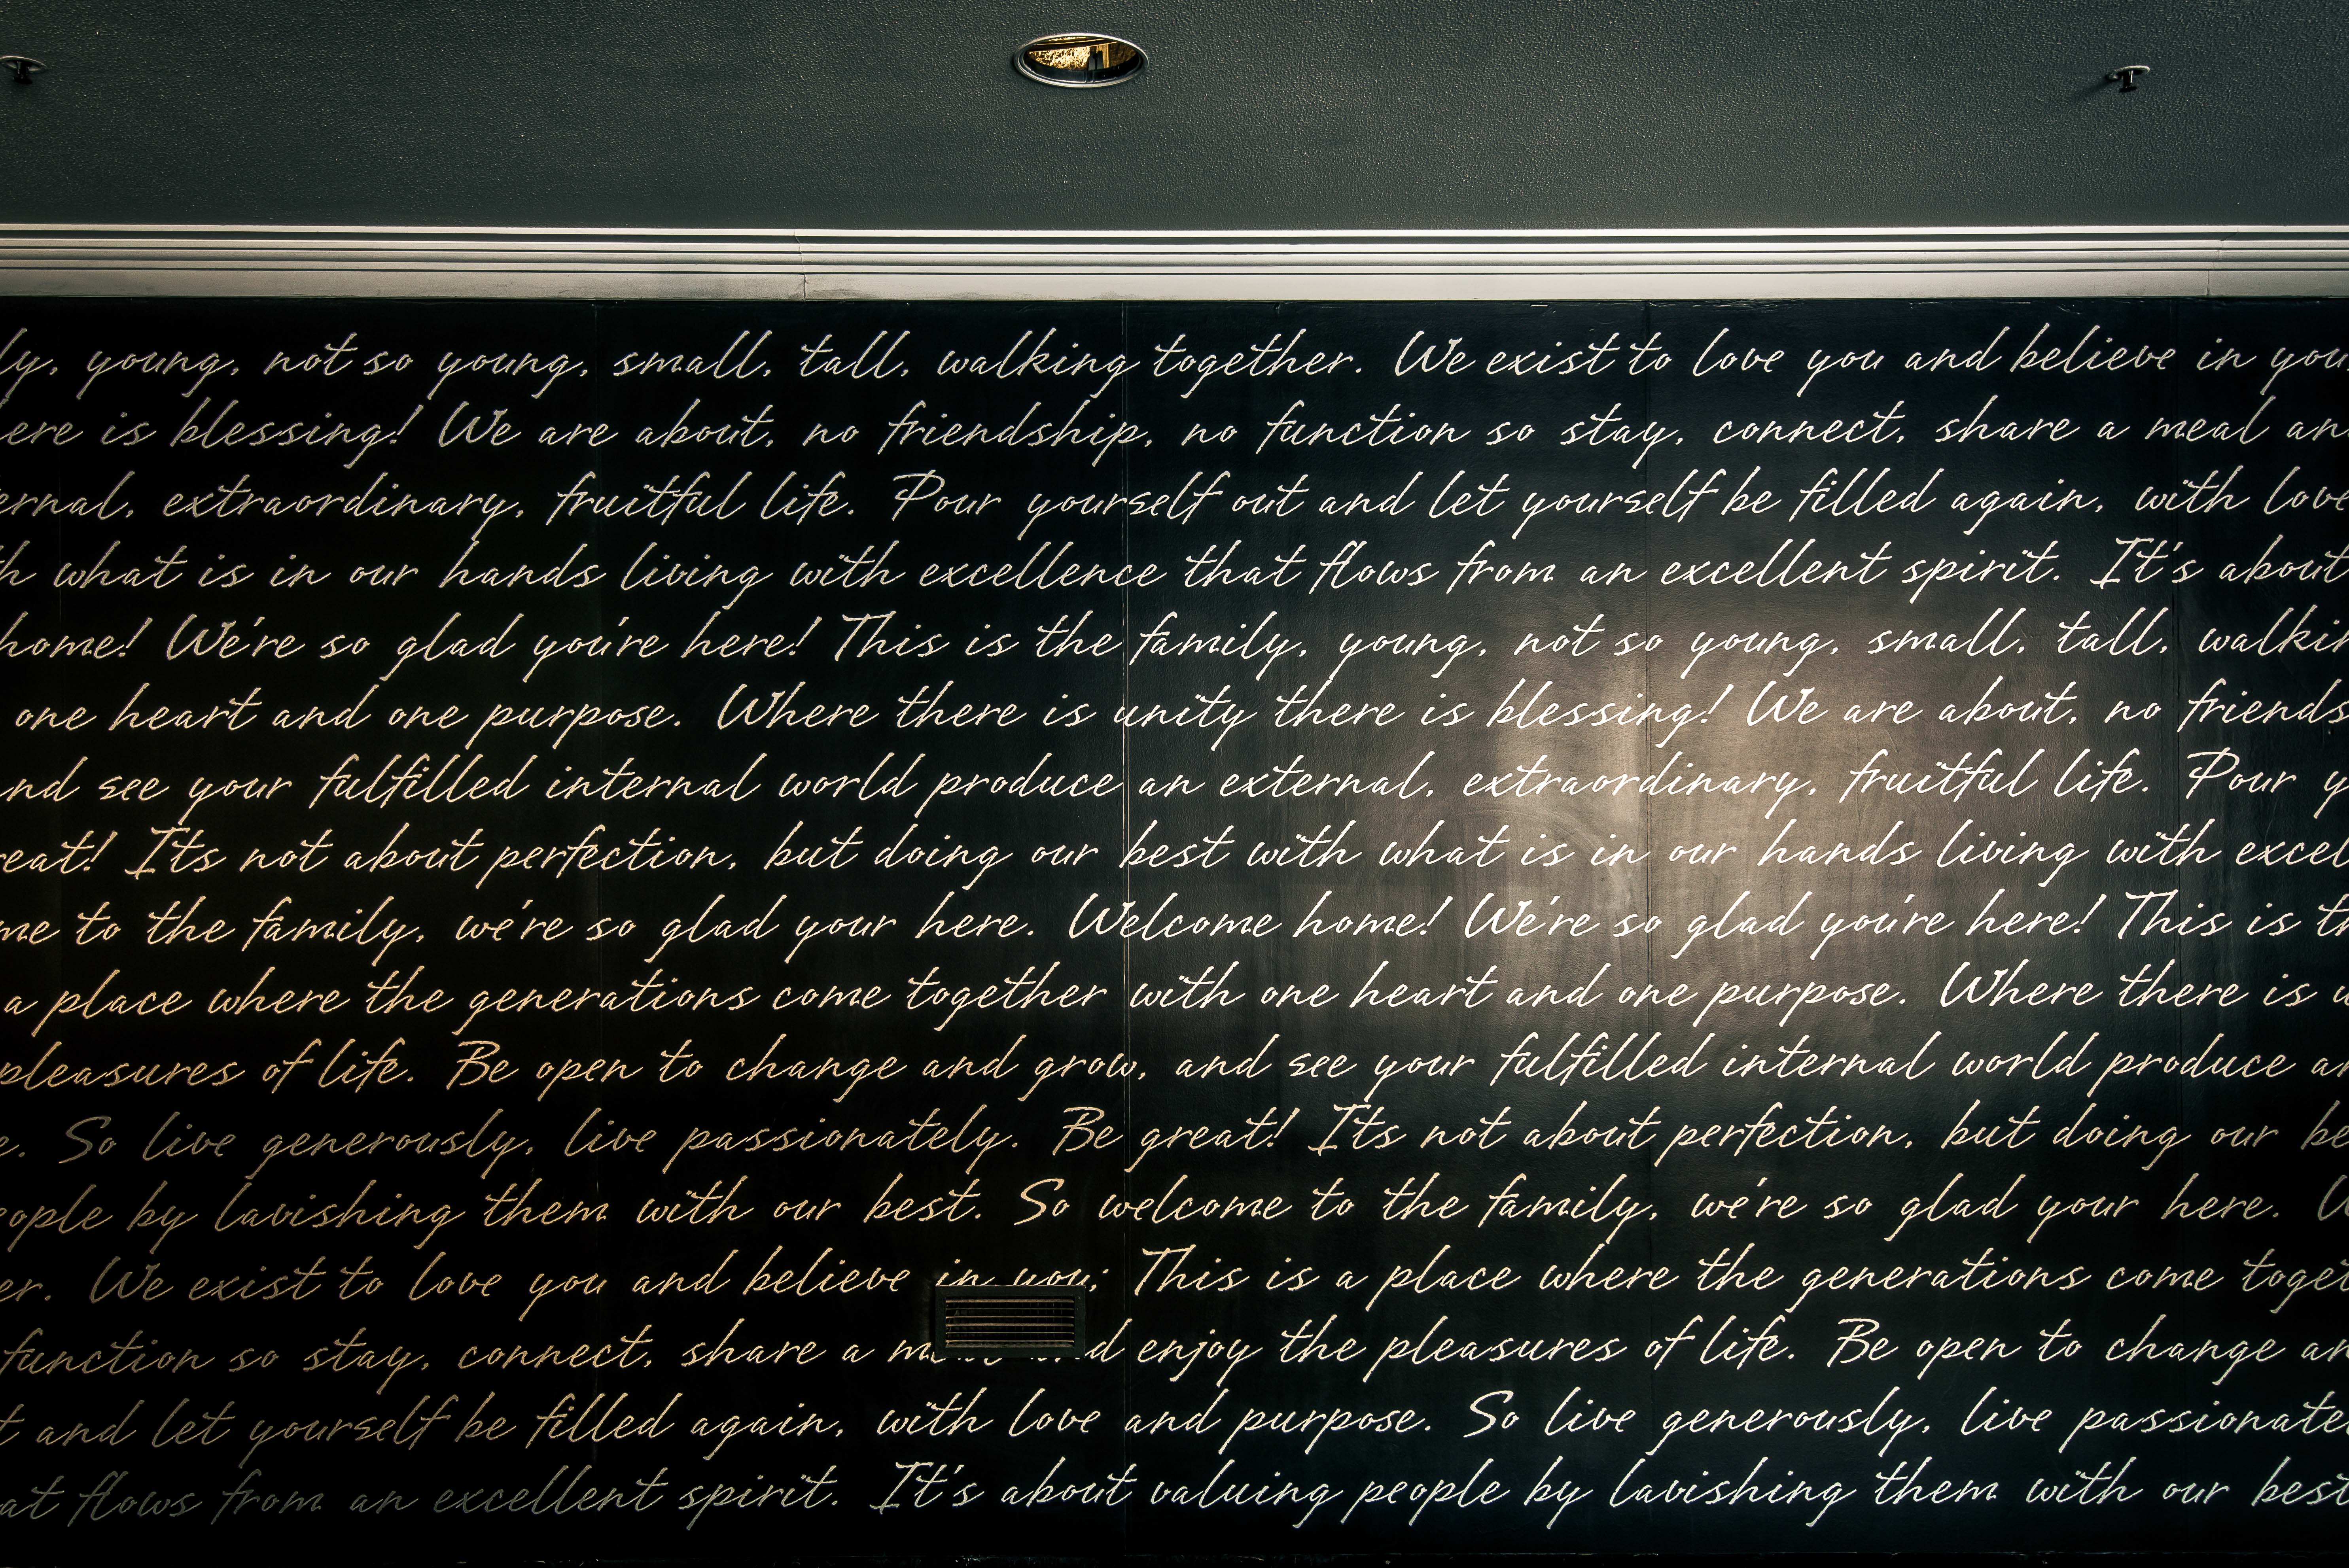 ly, young, not so young, small, tall, walking together. We exist to love you and believe in you
ere is blessing! We are about, no friendship, no function so stay, connect, share a meal an
ernal, extraordinary, fruitful life. Pour yourself out and let yourself be filled again, with love
h what is in our hands living with excellence that flows from an excellent spirit. It's about
home! We're so glad you're here! This is the family, young, not so young, small, tall, walkin
one heart and one purpose. Where there is unity there is blessing! We are about, no friends
nd see your fulfilled internal world produce an external, extraordinary, fruitful life. Pour y
reat! Its not about perfection, but doing our best with what is in our hands living with excel
me to the family, we're so glad your here. Welcome home! We're so glad you're here! This is th
a place where the generations come together with one heart and one purpose. Where there is u
pleasures of life. Be open to change and grow, and see your fulfilled internal world produce an
e. So live generously, live passionately. Be great! Its not about perfection, but doing our be
eople by lavishing them with our best. So welcome to the family, we're so glad your here. W
er. We exist to love you and believe in you; This is a place where the generations come toget
function so stay, connect, share a enjoy the pleasures of life. Be open to change an
t and let yourself be filled again, with love and purpose. So live generously, live passionate
at flows from an excellent spirit. It's about valuing people by lavishing them with our best